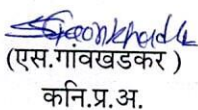 (एस.गांवखडकर )
कनि.प्र.अ.